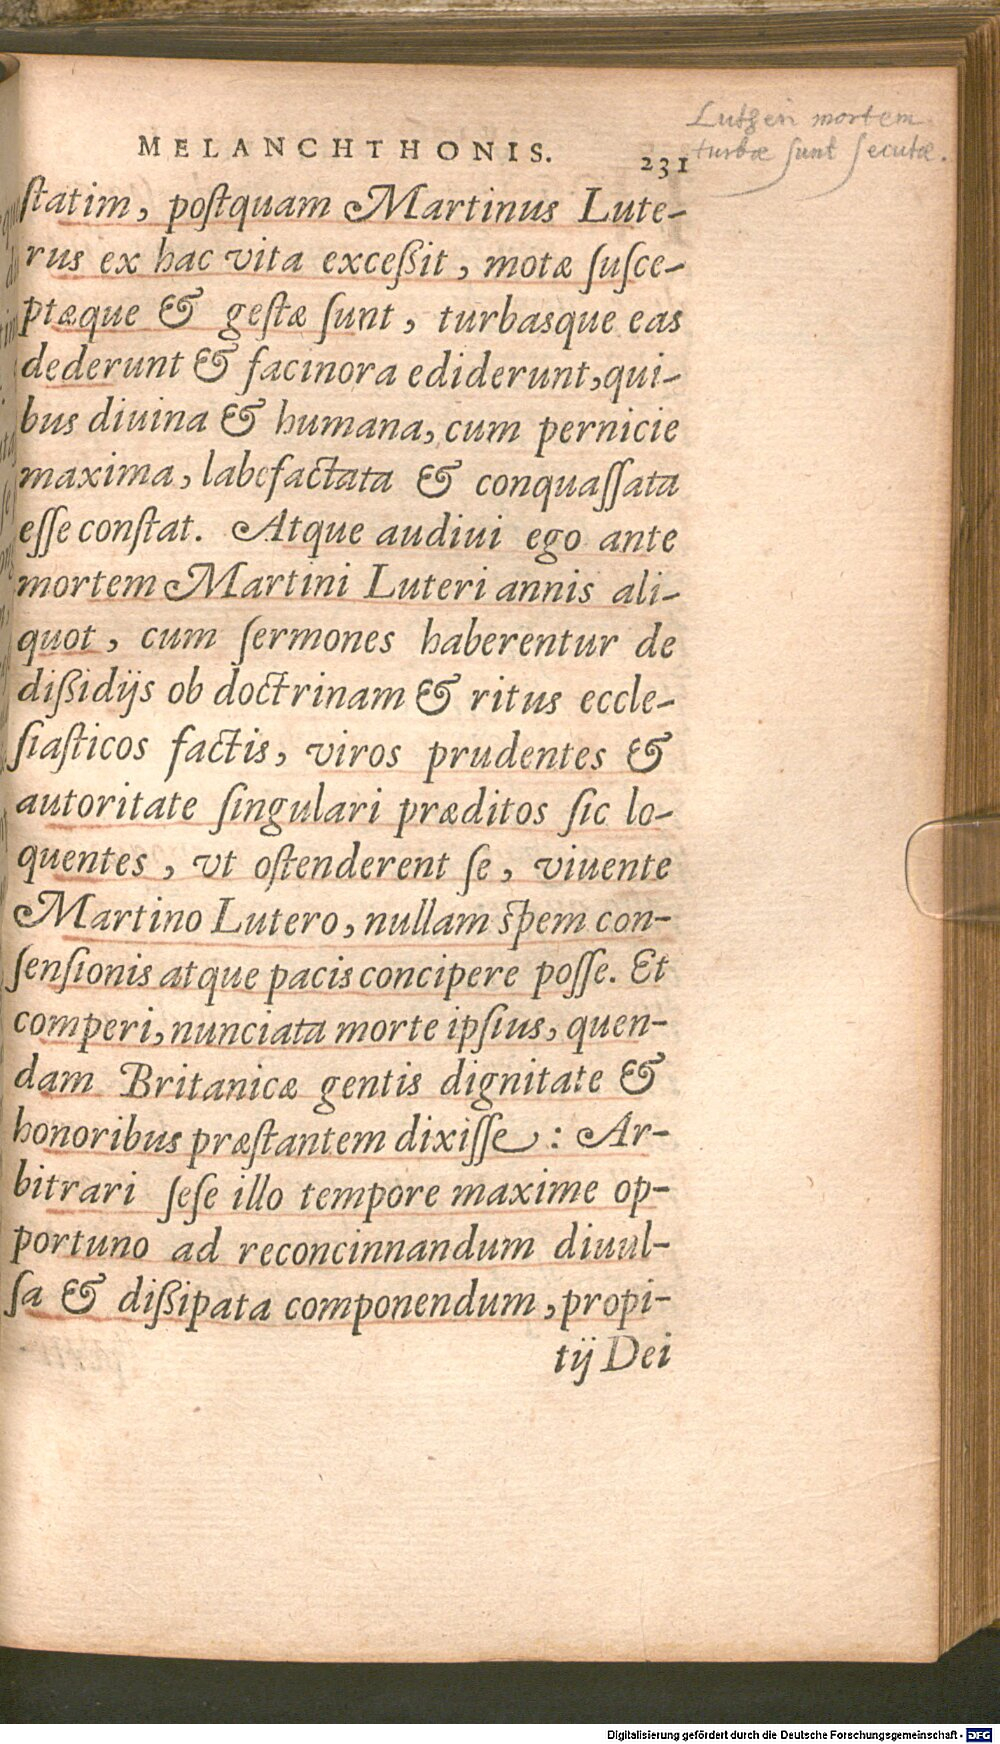 Lutheri mortem
turbæ ſunt ſecutæ.
MELANCHTHONIS. 231
ſtatim, poſtquam Martinus Lute-
rus ex hac vita exceßit, motæ ſuſce-
ptæque & geſtæ ſunt, turbasque eas
dederunt & facinora ediderunt, qui-
bus diuina & humana, cum pernicie
maxima, labefactata & conquaſſata
eſſe conſtat. Atque audiui ego ante
mortem Martini Luteri annis ali-
quot, cum ſermones haberentur de
dißidijs ob doctrinam & ritus eccle-
ſiaſticos factis, viros prudentes &
autoritate ſingulari præditos ſic lo-
quentes, vt oſtenderent ſe, viuente
Martino Lutero, nullam ſpem con-
ſenſionis atque pacis concipere poſſe. Et
comperi, nunciata morte ipſius, quen-
dam Britanicæ gentis dignitate &
honoribus præſtantem dixiſſe: Ar-
bitrari ſeſe illo tempore maxime op-
portuno ad reconcinnandum diuul-
ſa & dißipata componendum, propi-
tij Dei
Digitalisierung gefördert durch die Deutsche Forschungsgemeinschaft - DFG